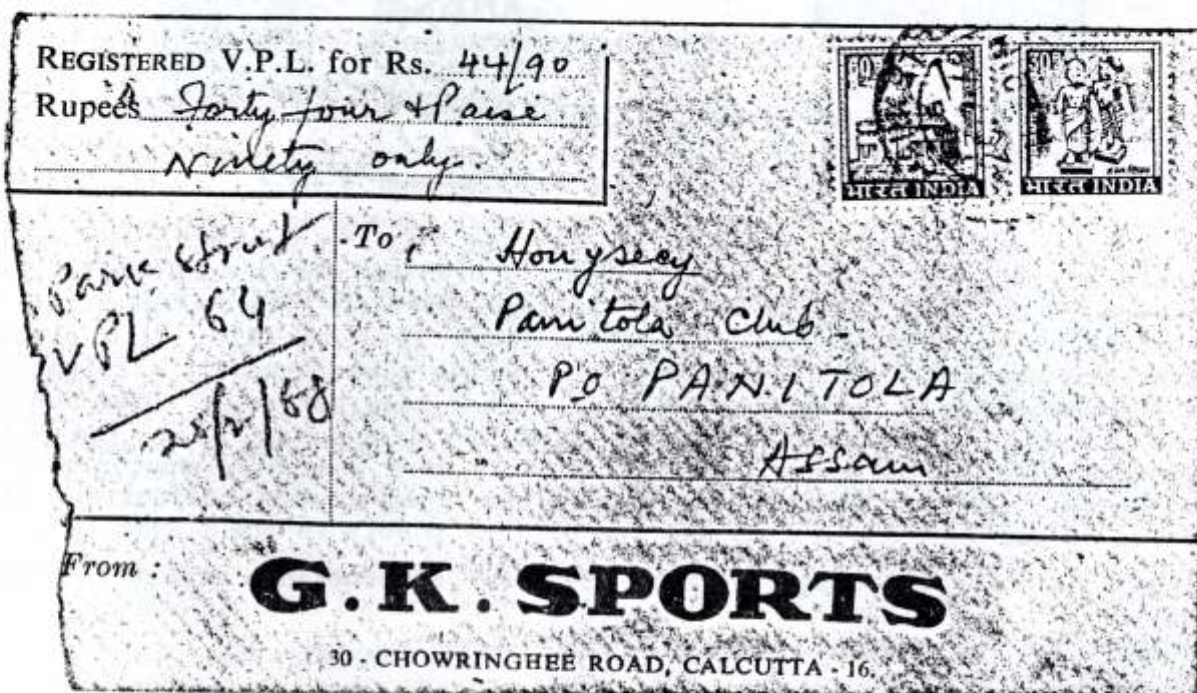 REGISTERED V.P.L. for Rs. 44/90
Rupees Forty four & Paise
Ninety only.
भारत INDIA
30 भारत INDIA
Park Street
VPL 64
To, Hony secy
Panitola Club
PO PANITOLA
Assam
From :
G. K. SPORTS
30 - CHOWRINGHEE ROAD, CALCUTTA - 16.